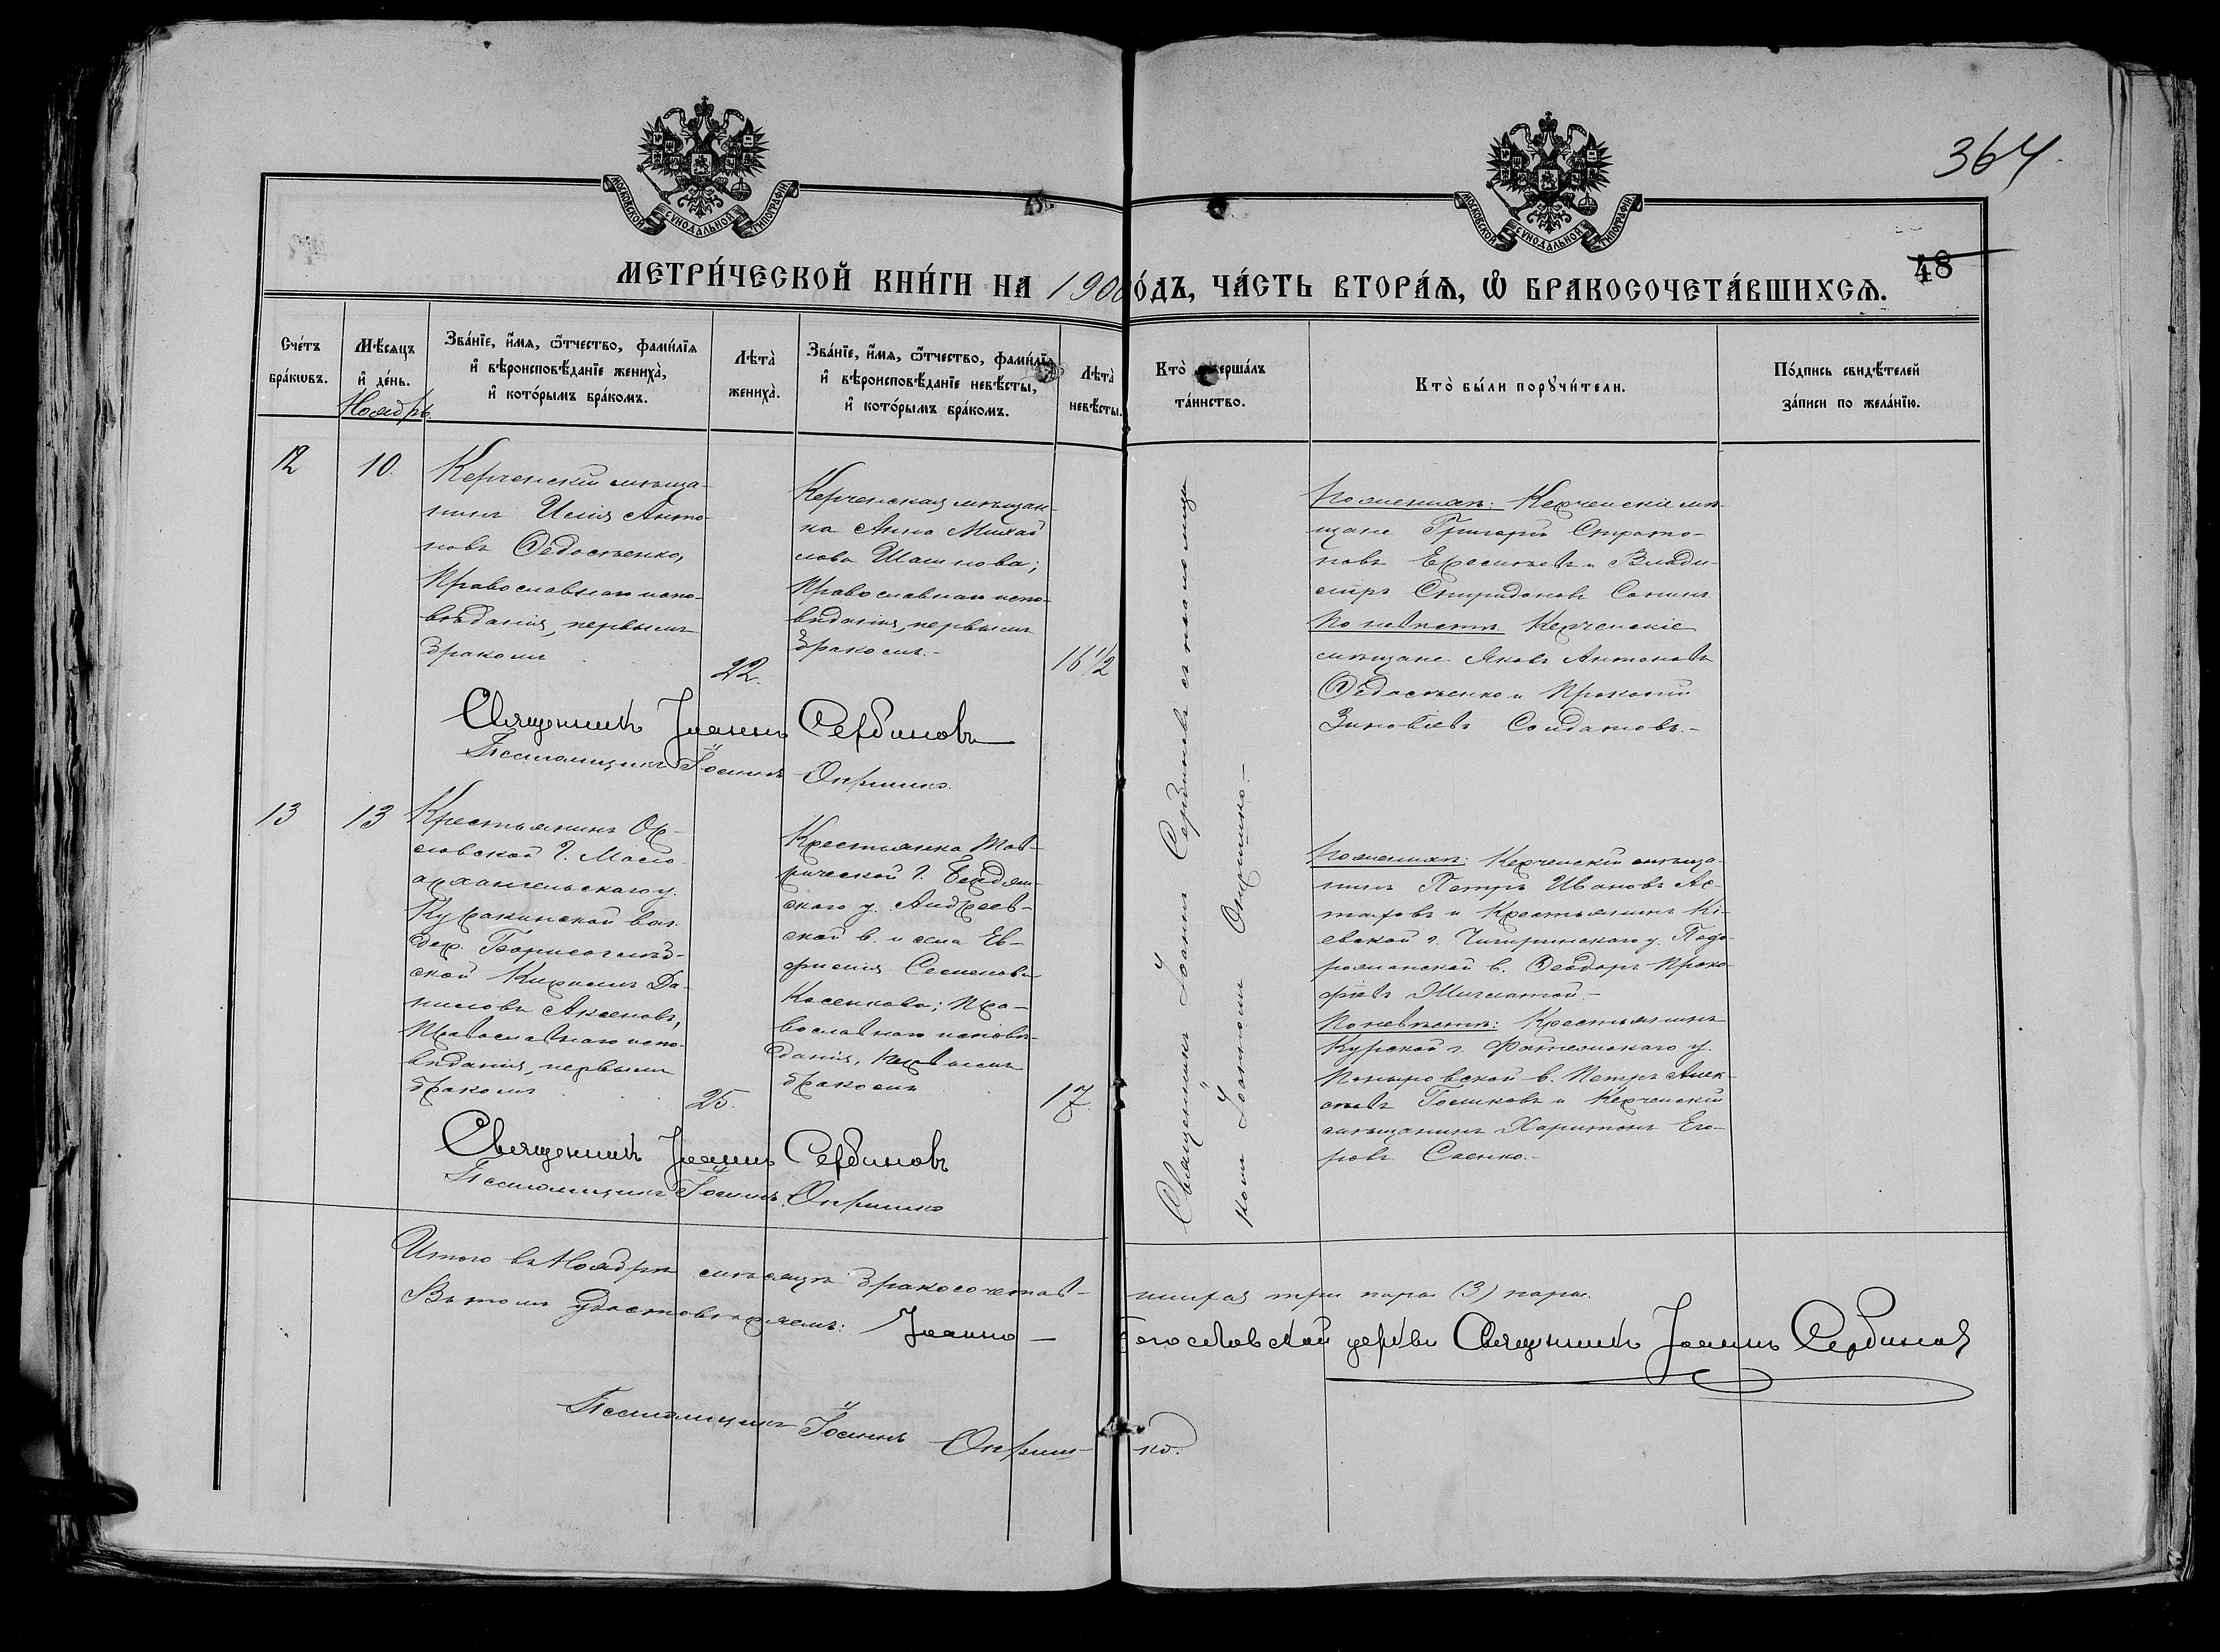 364.
МОСКОВСКОЙ СѴНОДАЛЬНОЙ ТИПОГРАФІИ
МОСКОВСКОЙ СѴНОДАЛЬНОЙ ТИПОГРАФІИ
48
МЕТРИ́ЧЕСКОЙ КНИ́ГИ НА 1900 ГО́ДЪ, ЧА́СТЬ ВТОРА́Ѧ, Ѡ҆ БРАКОСОЧЕТА́ВШИХСѦ.
Сче́тъ
бра́кѡвъ.
Мѣ́сѧцъ
и҆ де́нь.
Ноябрь.
Зва́нїе, и҆́мѧ, ѻ҆́тчество, фами́лїѧ
и҆ вѣроисповѣ́данїе жениха̀,
и҆ кото́рымъ бра́комъ.
Лѣта̀
жениха̀.
Зва́нїе, и҆́мѧ, ѻ҆́тчество, фами́лїѧ
и҆ вѣроисповѣ́данїе невѣ́сты,
и҆ кото́рымъ бра́комъ.
Лѣта̀
невѣ́сты.
Кто̀ соверша́лъ
та́инство.
Кто̀ бы́ли порꙋчи́тели.
По́дпись свидѣ́телей
за́писи по жела́нїю.
12
10.
Керченскій мѣща-
нинъ Илія Анто-
новъ Ѳедосѣенко,
Православнаго испо-
вѣданія, первымъ
бракомъ
22.
Керченская мѣщан-
ка Анна Михай
лова Шашнова;
Православнаго испо-
вѣданія, первымъ
бракомъ.-
16 1/2
По женихѣ: Керченскіе мѣ-
щане Григорій Страто-
новъ Ересинъевъ и Влади-
міръ Спиридоновъ Сонинъ
По невѣстѣ Керченскіе
мѣщане Яковъ Антоновъ
Ѳедосѣенко и Прокопій
Зиновіевъ Солдатовъ.-
Священникъ Іоаннъ Сербиновъ
Псаломщикъ Іоаннъ Опришко.
13
13
Крестьянинъ Ор-
ловской г. Мало-
архангельскаго у.
Куракинской вол.
дер. Борисоглѣб-
ской Кириллъ Да-
ниловъ Аксеновъ,
Православнаго испо-
вѣданія, первымъ
бракомъ
25.
Крестьянка Тав-
рической г. Бердян-
скаго у. Андреев-
ской в. и села Ев-
фимія Семенова
Косенкова; Пра-
вославнаго исповѣ-
данія, первымъ
бракомъ
17.
По женихѣ: Керченскій мѣща-
нинъ Петръ Ивановъ Ас-
таховъ и Крестьянинъ Кі-
евской г. Чигиринскаго у. Подо-
рожанской в. Ѳеодоръ Проко-
фіевъ
По невѣстѣ: Крестьянинъ
Курской г. Фатежскаго у.
Поныровской в. Петръ Алек-
сѣевъ Голиковъ и Керченскій
мѣщанинъ Харитонъ Его-
ровъ Саенко.-
Священникъ Іоаннъ Сербиновъ
Псаломщикъ Іоаннъ Опришко
Священникъ Іоаннъ Сербиновъ съ псаломщи
комъ Іоанномъ Опришко.-
Итого въ Ноябрѣ мѣсяцѣ бракосочетав-шихся три пары (3) пары.
Въ томъ удостовѣряемъ: Іоанно-Богословской церкви Священникъ Іоаннъ Сербиновъ
Псаломщикъ Іоаннъ Оприш-ко.